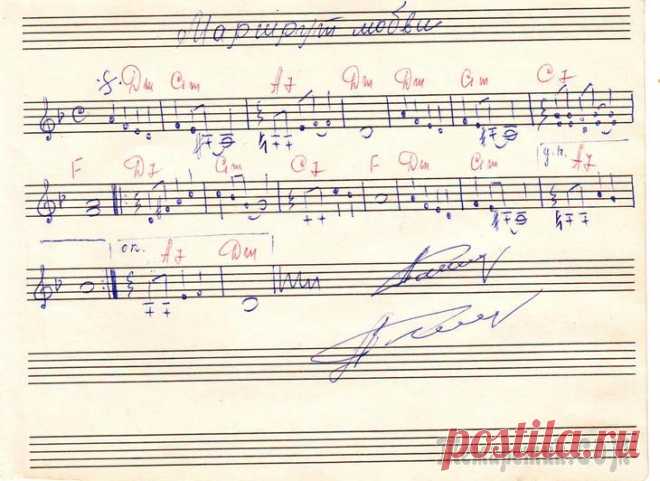 Маршрут любви
Dm Gm A7 Dm Dm Gm C7
F D7 Gm C7 F Dm Gm A7
A7 Dm
postila.ru